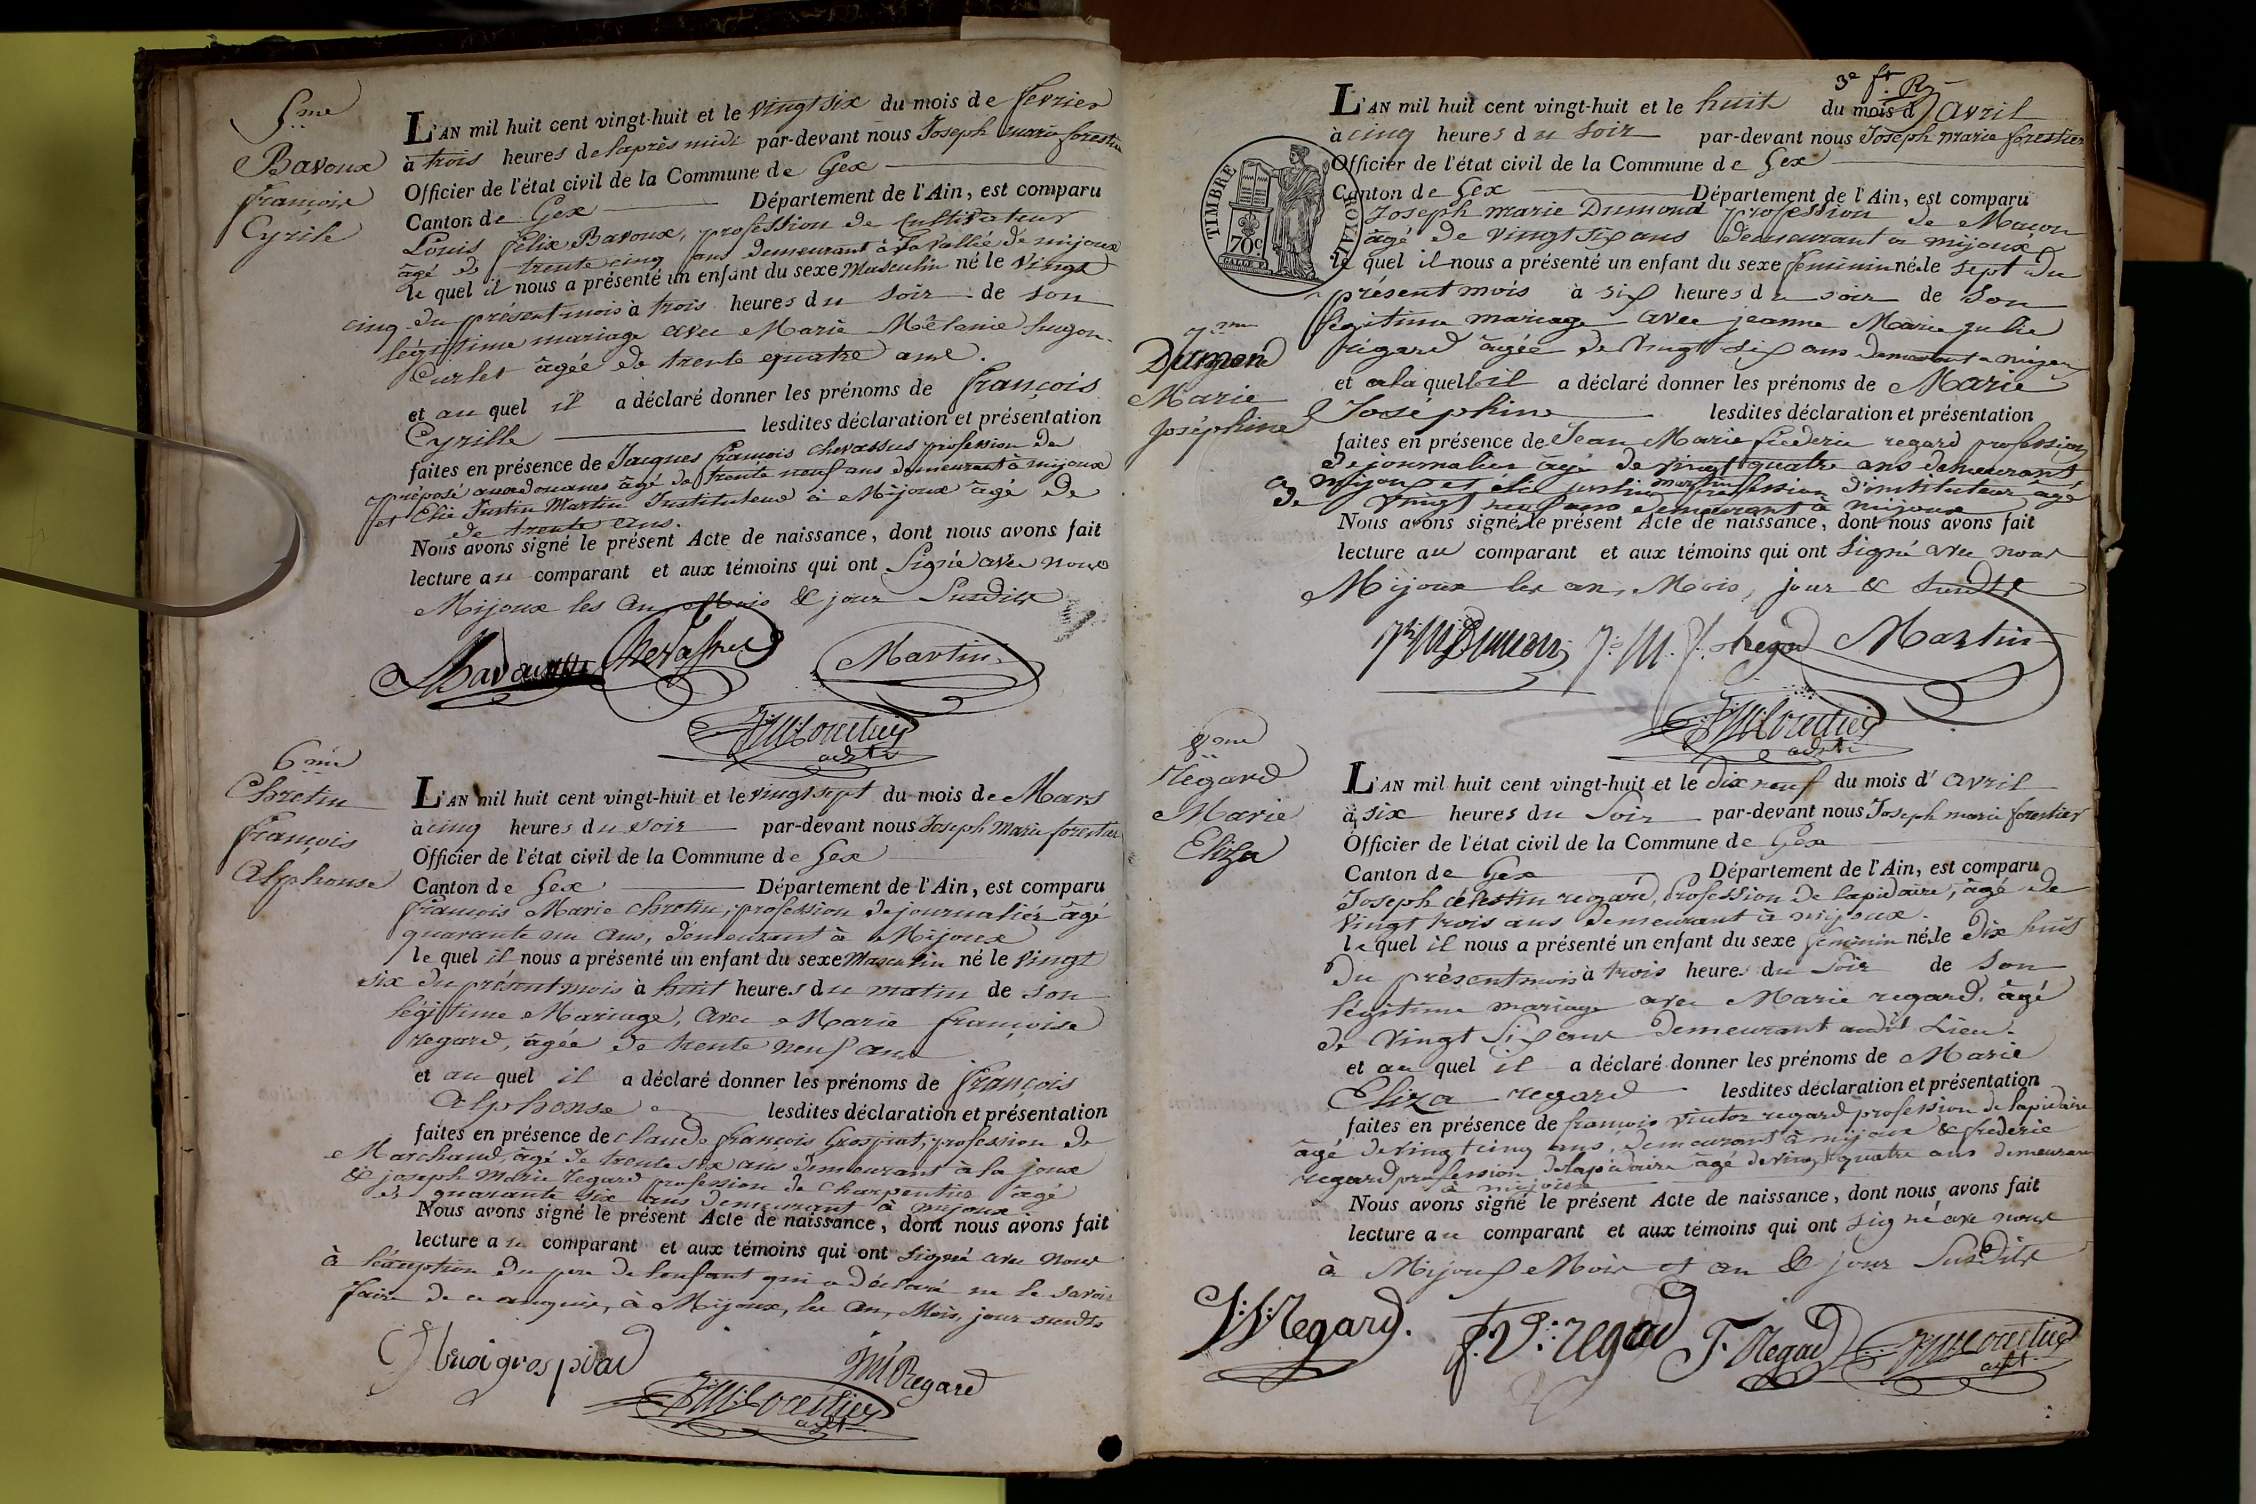 5me
Bavoux
François
Cyrile
L'AN mil huit cent vingt-huit et le vingt six du mois de fevrier
à trois heures de l'après midi par-devant nous Joseph marie forestier
Officier de l'état civil de la Commune de Gex
Canton de Gex Département de l'Ain, est comparu
Louis félix Bavoux, profession de Cultivateur
âgé de trente cinq ans demeurant à La vallée de mijoux
le quel il nous a présenté un enfant du sexe Masculin né le vingt
cinq du présent mois à trois heures du soir de son
légitime mariage avec Marie Mélanie
âgée de trente quatre ans.
et au quel il a déclaré donner les prénoms de François
Cyrille lesdites déclaration et présentation
faites en présence de Jacques françois Chevassus profession de
préposé aux douanes âgé de trente neuf ans demeurant à mijoux
et Elie Justin Martin Instituteur à Mijoux âgé de
de trente ans.
Nous avons signé le présent Acte de naissance, dont nous avons fait
lecture au comparant et aux témoins qui ont Signé avec nous
Mijoux les an, Mois & jour Susdits
Chevassus Martin
6me
Chretin
François
Alphonse
L'AN mil huit cent vingt-huit et le vingt sept du mois de Mars
à cinq heures du soir par-devant nous Joseph Marie forestier
Officier de l'état civil de la Commune de Gex
Canton de Gex Département de l'Ain, est comparu
françois Marie chretin, profession de journalier âgé
quarante un ans, demeurant à Mijoux
le quel il nous a présenté un enfant du sexe Masculin né le vingt
six du présent mois à huit heures du matin de son
légitime Mariage, avec Marie françoise
regard, âgée de trente neuf ans
et au quel il a déclaré donner les prénoms de François
Alphonse lesdites déclaration et présentation
faites en présence de claude françois Grospiat, profession de
Marchand, âgé de trente six ans demeurant à la joux
& joseph Marie regard profession de charpentier âgé
de quarante six ans demeurant à mijoux
Nous avons signé le présent Acte de naissance, dont nous avons fait
lecture au comparant et aux témoins qui ont signé avec nous
à l'éxception du père de l'enfant qui a déclaré ne le savoir
faire de ce enquis, à Mijoux, les an, Mois, jour susdits
JM Regard
3e fr
L'AN mil huit cent vingt-huit et le huit du mois d'avril
à cinq heures du soir par-devant nous Joseph marie forestier
Officier de l'état civil de la Commune de Gex
Canton de Gex Département de l'Ain, est comparu
TIMBRE ROYAL
70c
Joseph marie Dumond profession de Maçon
âgé de vingt six ans demeurant a mijoux
le quel il nous a présenté un enfant du sexe feminin né le sept du
présent mois à six heures du soir de son
légitime mariage avec jeanne Marie julie
régard âgée de vingt six ans demeurant a mijoux
7me
Dumond
Marie
Joséphine
et a la quelle il a déclaré donner les prénoms de Marie
Joséphine lesdites déclaration et présentation
faites en présence de Jean Marie frederic regard profession
de journalier âgé de vingt quatre ans demeurant
a mijoux et elie justin martin profession d'instituteur âgé
de vingt neuf ans demeurant à mijoux
Nous avons signé le présent Acte de naissance, dont nous avons fait
lecture au comparant et aux témoins qui ont signé avec nous
Mijoux les an, Mois, jour & susdits
Martin
8me
Régard
Marie
Eliza
L'AN mil huit cent vingt-huit et le dix neuf du mois d'avril
à six heures du Soir par-devant nous Joseph marie forestier
Officier de l'état civil de la Commune de Gex
Canton de Gex Département de l'Ain, est comparu
Joseph célestin regard, profession de lapidaire, âgé de
vingt trois ans demeurant à mijoux.
le quel il nous a présenté un enfant du sexe feminin né le dix huit
du présent mois à trois heures du soir de son
légitime mariage avec Marie regard, âgé
de vingt six ans demeurant audit Lieu.
et au quel il a déclaré donner les prénoms de Marie
Eliza regard lesdites déclaration et présentation
faites en présence de françois victor regard profession de lapidaire
âgé de vingt cinq ans, demeurant à mijoux & frederic
regard profession de lapidaire âgé de vingt quatre ans demeurant
à mijoux
Nous avons signé le présent Acte de naissance, dont nous avons fait
lecture au comparant et aux témoins qui ont signé avec nous
à Mijoux Mois et an & jour Susdits
Regard. f. V. regard F. Regad